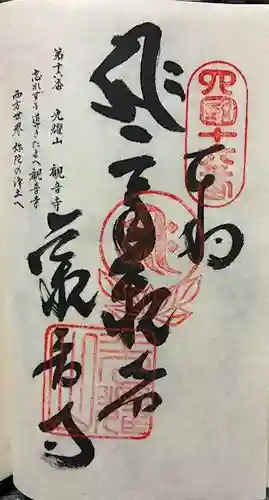 四国十六番
奉納
千手観音
観音寺
第十六番 光耀山 観音寺
忘れずも導きたまへ観音寺
西方世界弥陀の浄土へ